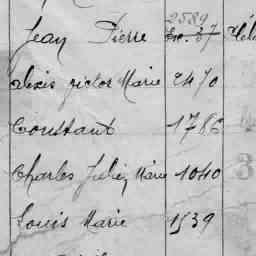 2589
Jean Pierre
Alexis Victor Marie 2470
Constant 1786
Charles Julien Marie 1040
Louis Marie 1539